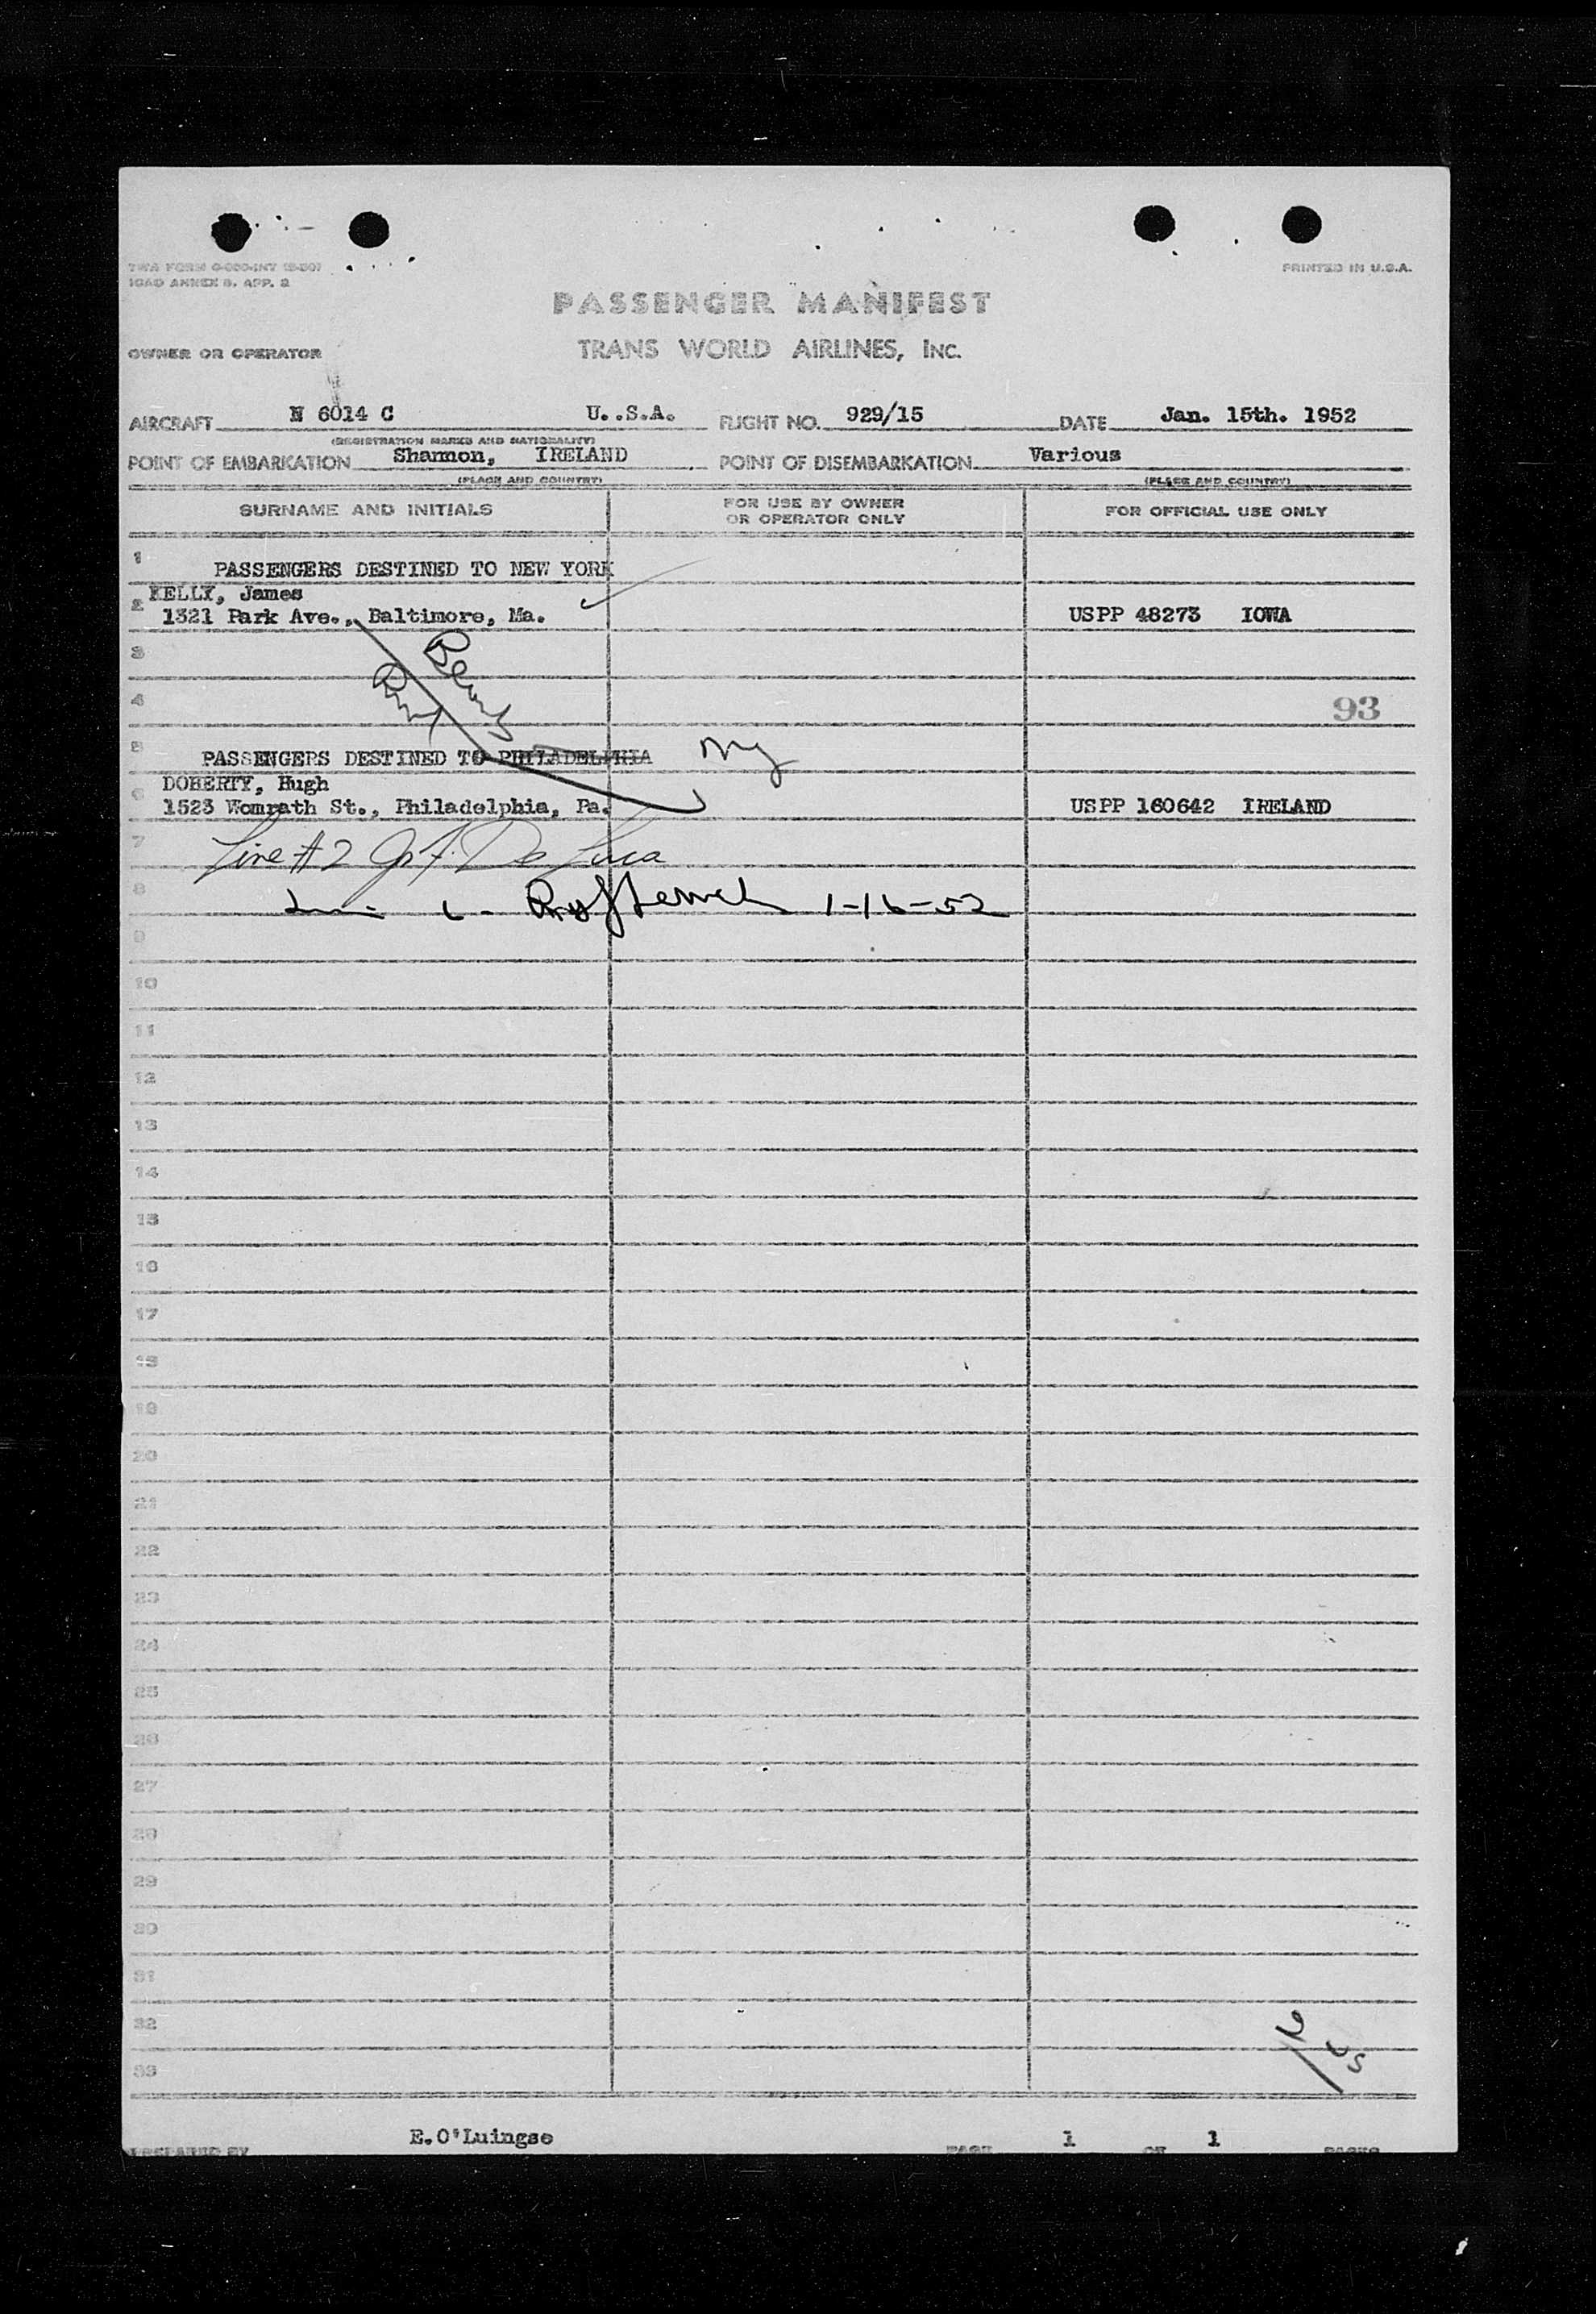 TWA FORM
ICAO ANNEX 9, APP. 2
PRINTED IN U.S.A.
PASSENGER MANIFEST
OWNER OR OPERATOR TRANS WORLD AIRLINES, INC.
AIRCRAFT N 6014 C U..S.A. FLIGHT NO. 929/15 DATE Jan. 15th. 1952
(REGISTRATION MARKS AND NATIONALITY)
POINT OF EMBARKATION Shannon, IRELAND POINT OF DISEMBARKATION Various
(PLACE AND COUNTRY) (PLACE AND COUNTRY)
SURNAME AND INITIALS FOR USE BY OWNER OR OPERATOR ONLY FOR OFFICIAL USE ONLY
1 PASSENGERS DESTINED TO NEW YORK
KELLY, James
2 1321 Park Ave., Baltimore, Ma. USPP 48273 IOWA
3
4 93
5 PASSENGERS DESTINED TO PHILADELPHIA NY
DOHERTY, Hugh
6 1523 Womrath St., Philadelphia, Pa. USPP 160642 IRELAND
7 Line #2 De Luca
8 6 - 1-16-52
9
10
11
12
13
14
15
16
17
18
19
20
21
22
23
24
25
26
27
28
29
30
31
32
33
PREPARED BY E.O'Luingse PAGE 1 OF 1 PAGES